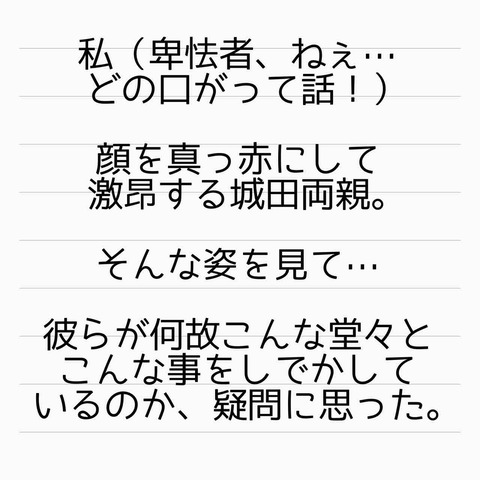 私（卑怯者、ねぇ…
どの口がって話！）
顔を真っ赤にして
激昂する城田両親。
そんな姿を見て…
彼らが何故こんな堂々と
こんな事をしでかして
いるのか、疑問に思った。